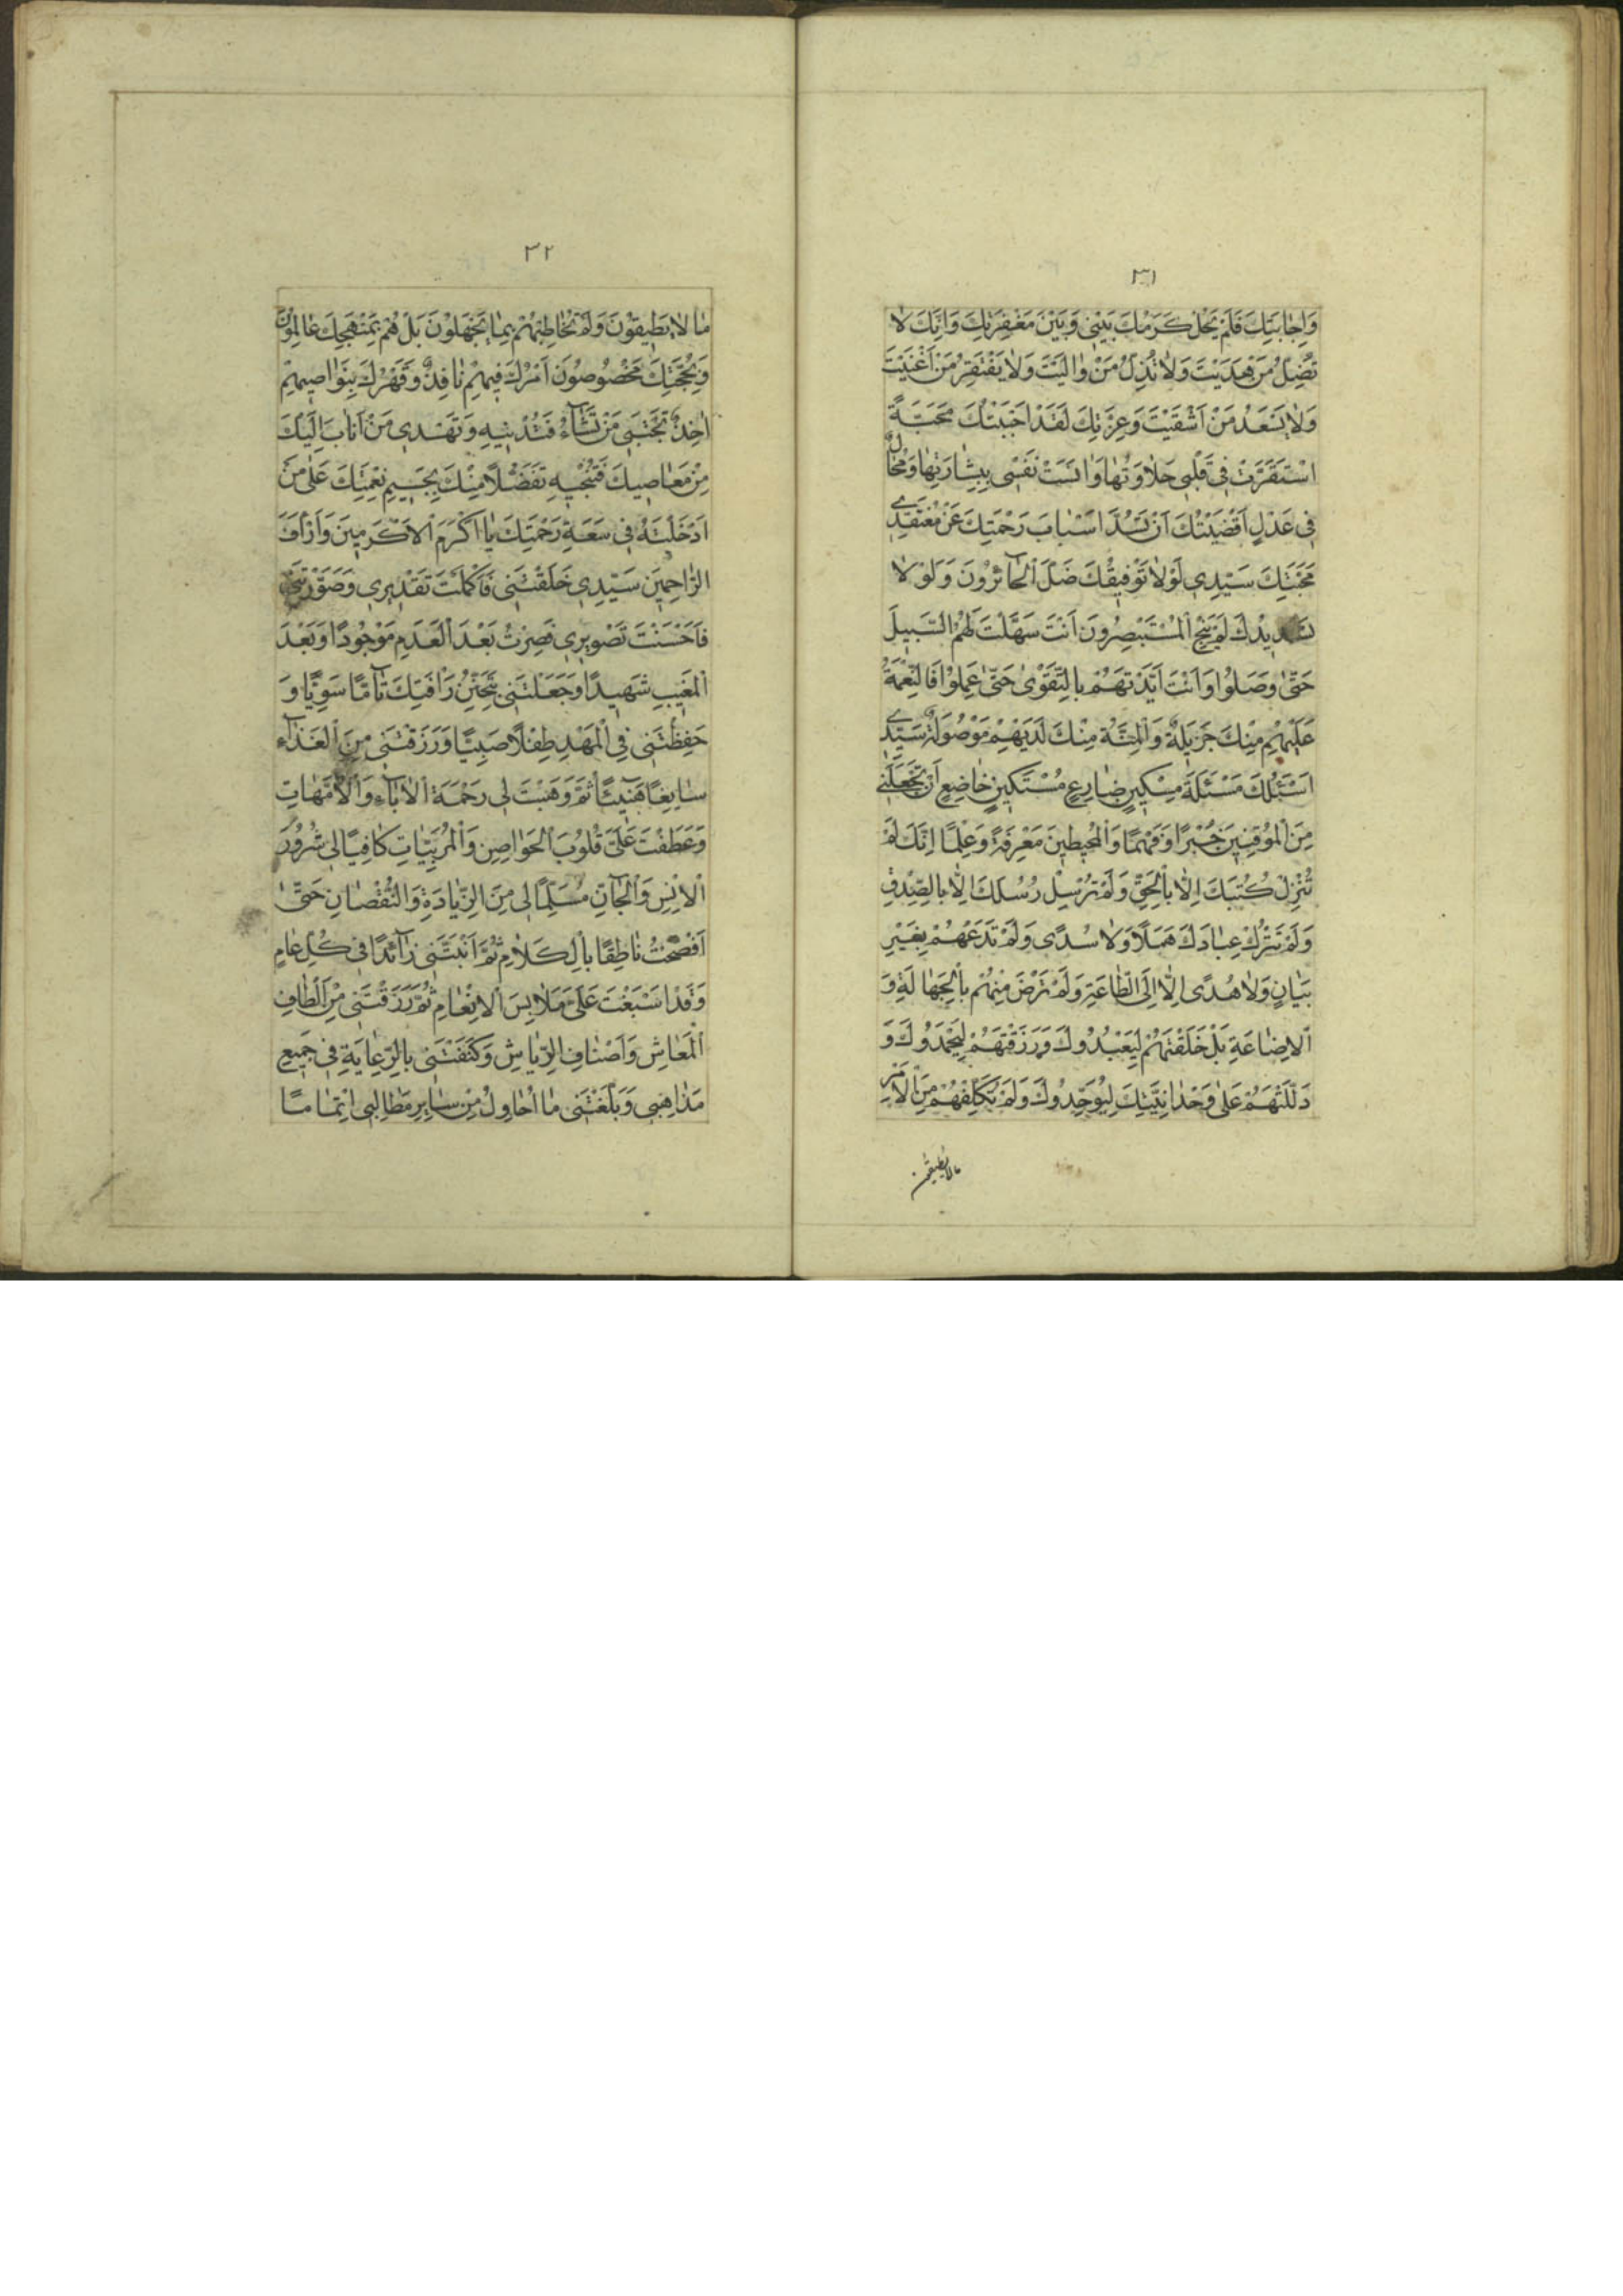 ٣١
وَاِجابَتِكَ فَلَمْ يَحُلْ كَرَمُكَ بَيْنى وَبَيْنَ مَغْفِرَتِكَ وَاِنَّكَ لا
تُضِلُّ مَنْ هَدَيْتَ وَلا تُذِلُّ مَنْ والَيْتَ وَلا يَفْتَقِرُ مَنْ اَغْنَيْتَ
وَلا يَسْعَدُ مَنْ اَشْقَيْتَ وَعِزَّتِكَ لَقَدْ اَحْبَبْتُكَ مَحَبَّةً
اسْتَقَرَّتْ فى قَلْبى حَلاوَتُها وَانَسَتْ نَفْسى بِبِشارَتِها وَمُحالٌ
فى عَدْلِ اَقْضِيَتِكَ اَنْ تَسُدَّ اَسْبابَ رَحْمَتِكَ عَنْ مُعْتَقِدى
مَحَبَّتِكَ سَيِّدى لَوْلا تَوْفيقُكَ ضَلَّ الْحآئِرُونَ وَلَوْلا
تَسْديدُكَ لَمْ يَنْجُ الْمُسْتَبْصِرُونَ اَنْتَ سَهَّلْتَ لَهُمُ السَّبيلَ
حَتّى وَصَلُوا وَاَنْتَ اَيَّدْتَهُمْ بِالتَّقْوى حَتّى عَمِلُوا فَالنِّعْمَةُ
عَلَيْهِمْ مِنْكَ جَزيلَةٌ وَالْمِنَّةُ مِنْكَ لَدَيْهِمْ مَوْصُولَةٌ سَيِّدى
اَسْئَلُكَ مَسْئَلَةَ مِسْكينٍ ضارِعٍ مُسْتَكينٍ خاضِعٍ اَنْ تَجْعَلَنى
مِنَ الْمُوقِنينَ خُبْرًا وَفَهْمًا وَالْمُحيطينَ مَعْرِفَةً وَعِلْمًا اِنَّكَ لَمْ
تُنْزِلْ كُتُبَكَ اِلّا بِالْحَقِّ وَلَمْ تُرْسِلْ رُسُلَكَ اِلّا بِالصِّدْقِ
وَلَمْ تَتْرُكْ عِبادَكَ هَمَلًا وَلا سُدًى وَلَمْ تَدَعْهُمْ بِغَيْرِ
بَيانٍ وَلا هُدًى اِلّا اِلَى الطّاعَةِ وَلَمْ تَرْضَ مِنْهُمْ بِالْجَهالَةِ وَ
الْاِضاعَةِ بَلْ خَلَقْتَهُمْ لِيَعْبُدُوكَ وَرَزَقْتَهُمْ لِيَحْمَدُوكَ وَ
دَلَلْتَهُمْ عَلى وَحْدانِيَّتِكَ لِيُوَحِّدُوكَ وَلَمْ تُكَلِّفْهُمْ مِنَ الْاَمْرِ
مالا يطيقون
٣٢
ما لا يَطيقُونَ وَلَمْ تُخاطِبْهُمْ بِما يَجْهَلُونَ بَلْ هُمْ بِمَنْهَجِكَ عالِمُونَ
وَبِحُجَّتِكَ مَخْصُوصُونَ اَمْرُكَ فيهِمْ نافِذٌ وَقَهْرُكَ بِنَواصيهِمْ
اخِذٌ تَجْتَبى مَنْ تَشآءُ فَتُدْنيهِ وَتَهْدى مَنْ اَنابَ اِلَيْكَ
مِنْ مَعاصيكَ فَتُنْجيهِ تَفَضُّلًا مِنْكَ بِجَسيمِ نِعْمَتِكَ عَلى مَنْ
اَدْخَلْتَهُ فى سَعَةِ رَحْمَتِكَ يا اَكْرَمَ الْاَكْرَمينَ وَاَرْاَفَ
الرّاحِمينَ سَيِّدى خَلَقْتَنى فَاَكْمَلْتَ تَقْديرى وَصَوَّرْتَنى
فَاَحْسَنْتَ تَصْويرى فَصِرْتُ بَعْدَ الْعَدَمِ مَوْجُودًا وَبَعْدَ
الْمَغيبِ شَهيدًا وَجَعَلْتَنى بِتَحَنُّنِ رَاْفَتِكَ تآمًّا سَوِيًّا وَ
حَفِظْتَنى فِى الْمَهْدِ طِفْلًا صَبِيًّا وَرَزَقْتَنى مِنَ الْغَذآءِ
سايِغًا هَنيئًا ثُمَّ وَهَبْتَ لى رَحْمَةَ الْابآءِ وَالْاُمَّهاتِ
وَعَطَفْتَ عَلَىَّ قُلُوبَ الْحَواصِنِ وَالْمُرَبِّياتِ كافِيًا لى شُرُورَ
الْاِنْسِ وَالْجآنِّ مُسَلِّمًا لى مِنَ الزِّيادَةِ وَالنُّقْصانِ حَتّى
اَفْصَحْتُ ناطِقًا بِالْكَلامِ ثُمَّ اَنْبَتَّنى زآئِدًا فى كُلِّ عامٍ
وَقَدْ اَسْبَغْتَ عَلَىَّ مَلابِسَ الْاِنْعامِ ثُمَّ رَزَقْتَنى مِنْ اَلْطافِ
الْمَعاشِ وَاَصْنافِ الرِّياشِ وَكَنَفْتَنى بِالرِّعايَةِ فى جَميعِ
مَذاهِبى وَبَلَّغْتَنى ما اُحاوِلُ مِنْ سايِرِ مَطالِبى اِتْمامًا